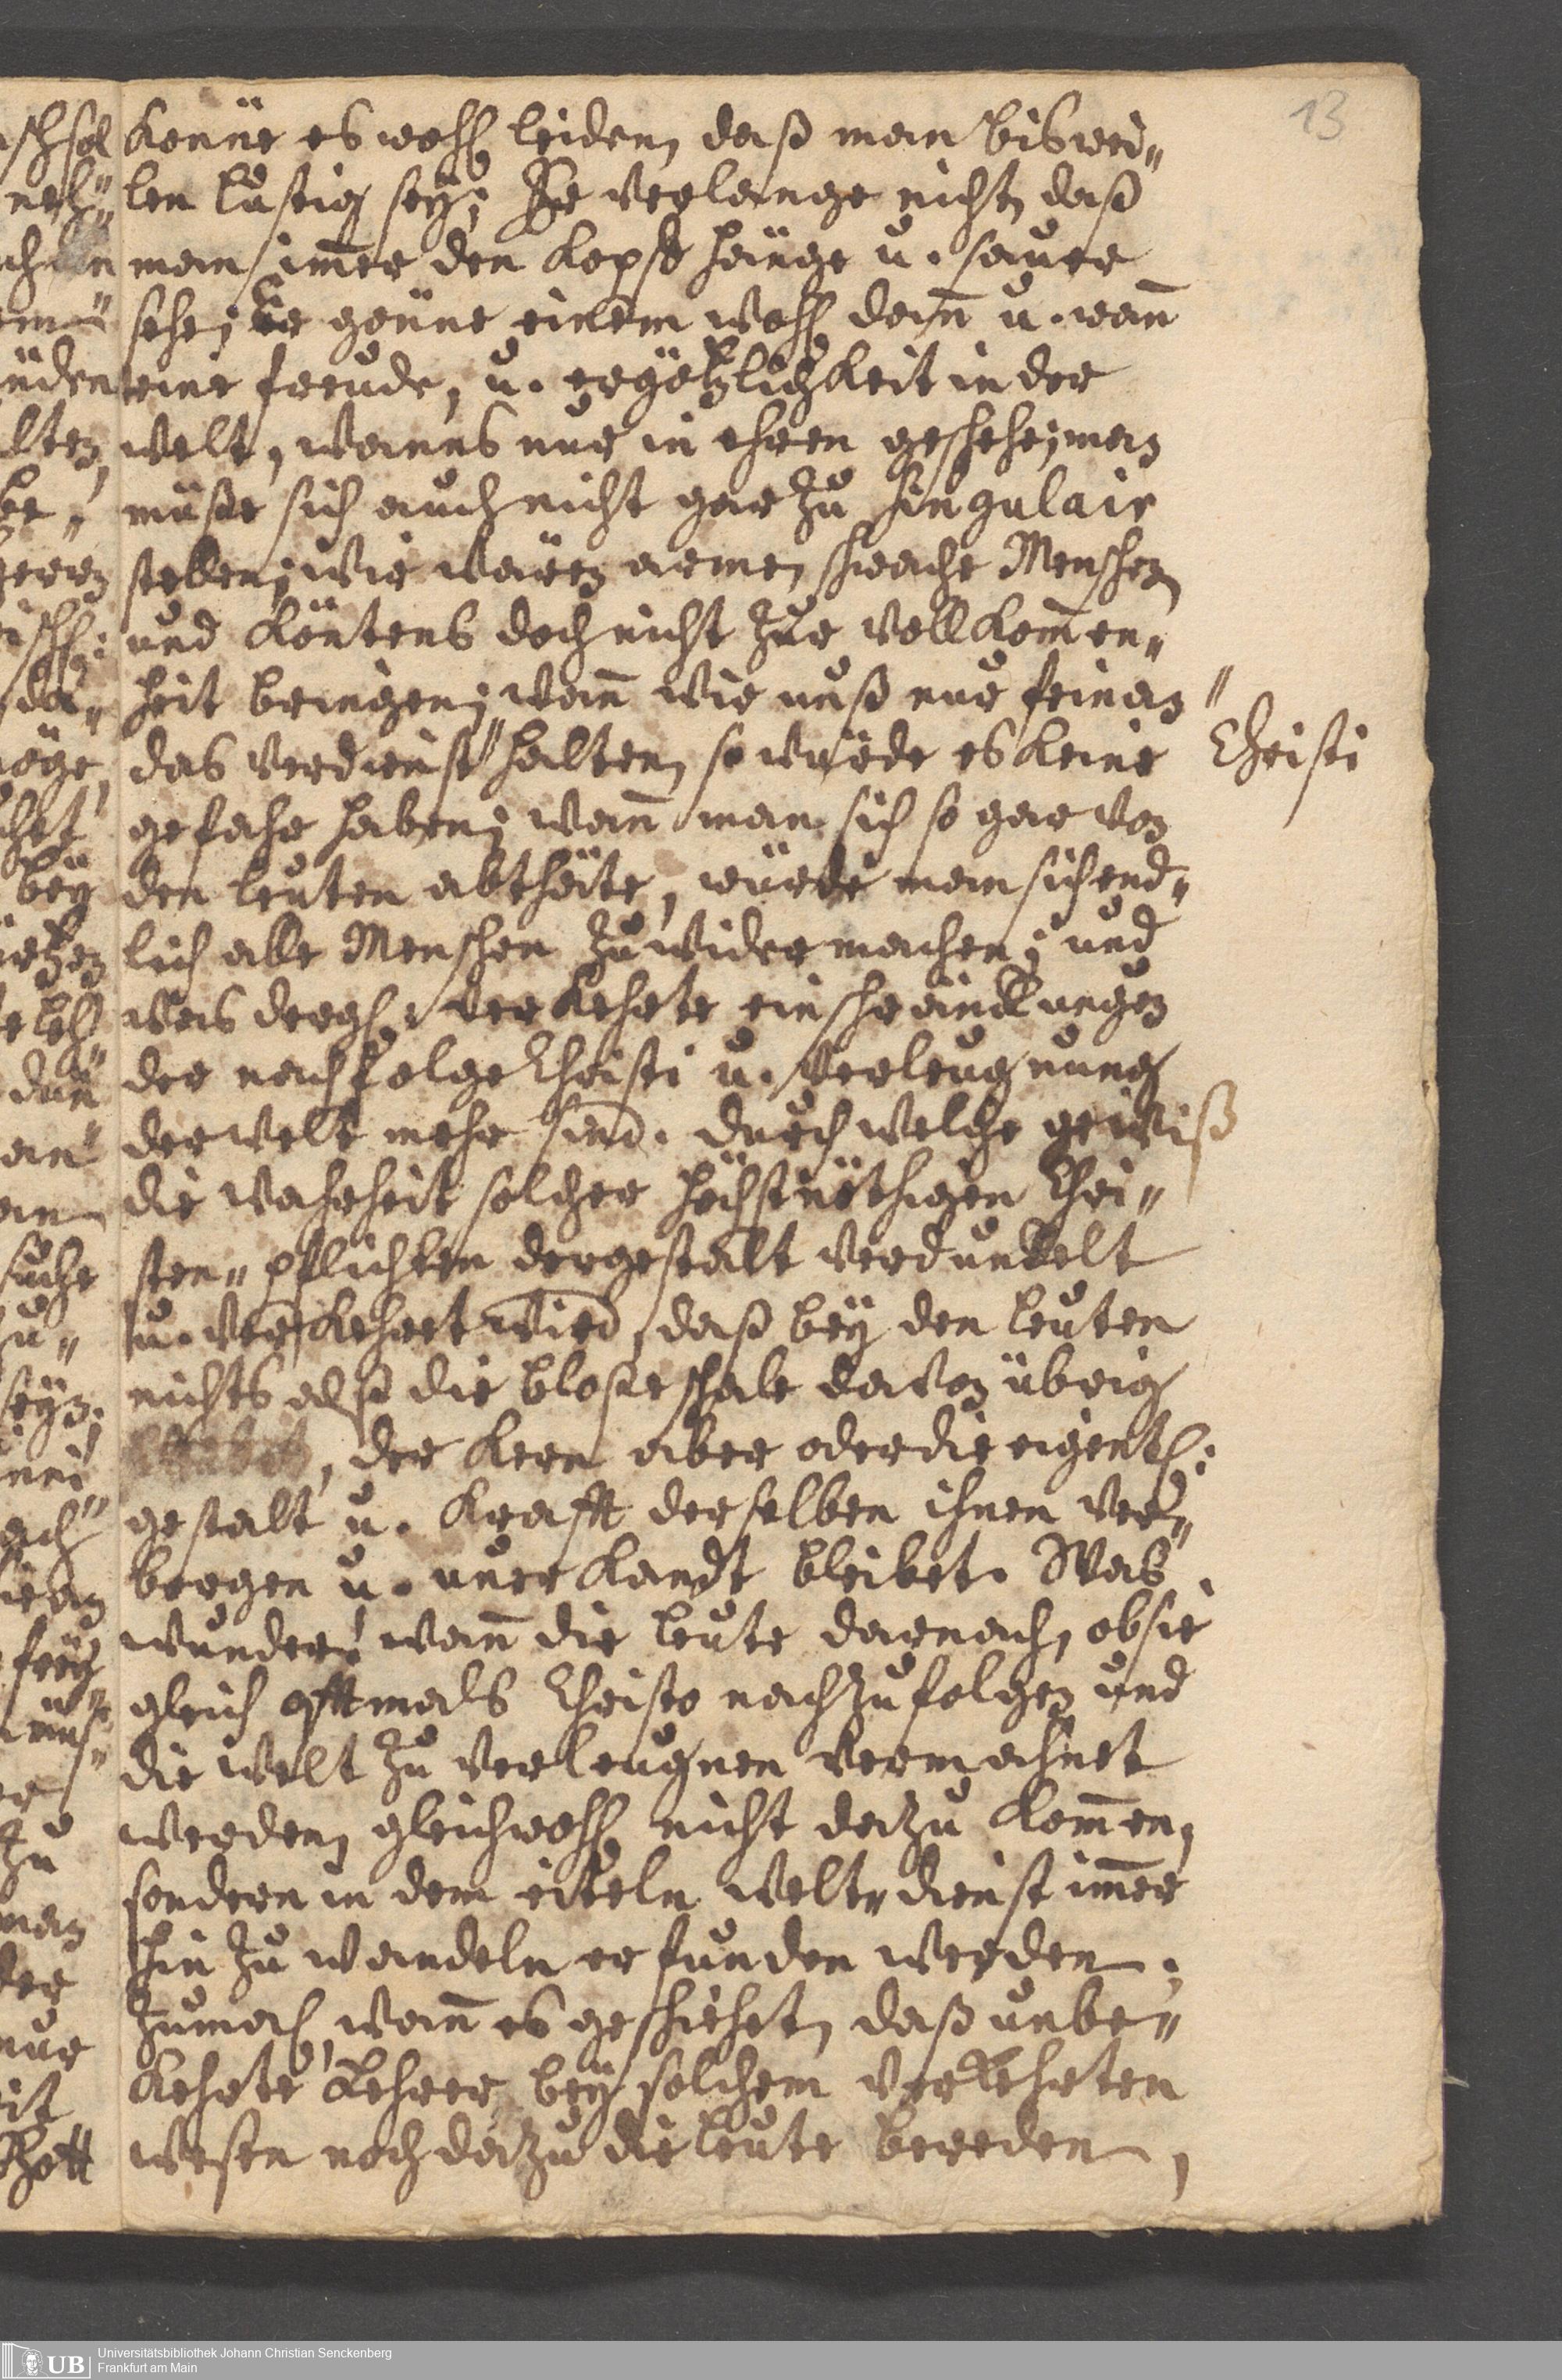 13
könne es wohl leiden, daß man bißwei„
len lustig seÿ; Er verlange nicht, daß
man immer den Kopff hänge u. sauer
sehe; Er gönne einem wohl dann u. wann
eine freude, u. ergötzlichkeit in der
welt, wanns nur in ehren geschehe; man
müste sich auch nicht gar zu singulair
stellen; wir wären arme, schwache Menschen
und köntens doch nicht zur vollkommen„
heit bringen; wann wir unß nur fein an
das verdienst " halten, so würde es keine
" Christi
gefahr haben; wann man sich so gar von
den leuten abthäte, würde man sich end„
lich alle Menschen zuwider machen; und
was dergl: verkehrte einschränckungen
der nachfolge Christi u. verleugnung
der welt mehr sind. durch welche gewiß
die wahrheit solcher höchstnöthigen Chri„
sten„pflichten dergestalt verdunkelt
u. verkehret wird, daß beÿ den leuten
nichts alß die blose schale davon übrig
bleibet, der Kern aber oder die eigentl:
gestalt u. Krafft derselben ihnen ver„
borgen u. unerkandt bleibet. Was
wunder! wann die leute darnach, ob sie
gleich offtmals Christo nachzufolgen und
die welt zu verleugnen vermahnet
werden, gleichwohl nicht dazu kommen,
sondern in dem eiteln welt„dienst immer
hin zu wandeln erfunden werden.
Zumal, wann es geschiehet, daß unbe„
kehrte Lehrer beÿ solchem verkehrten
wesen noch dazu die leute bereden,
UB Universitätsbibliothek Johann Christian Senckenberg
Frankfurt am Main